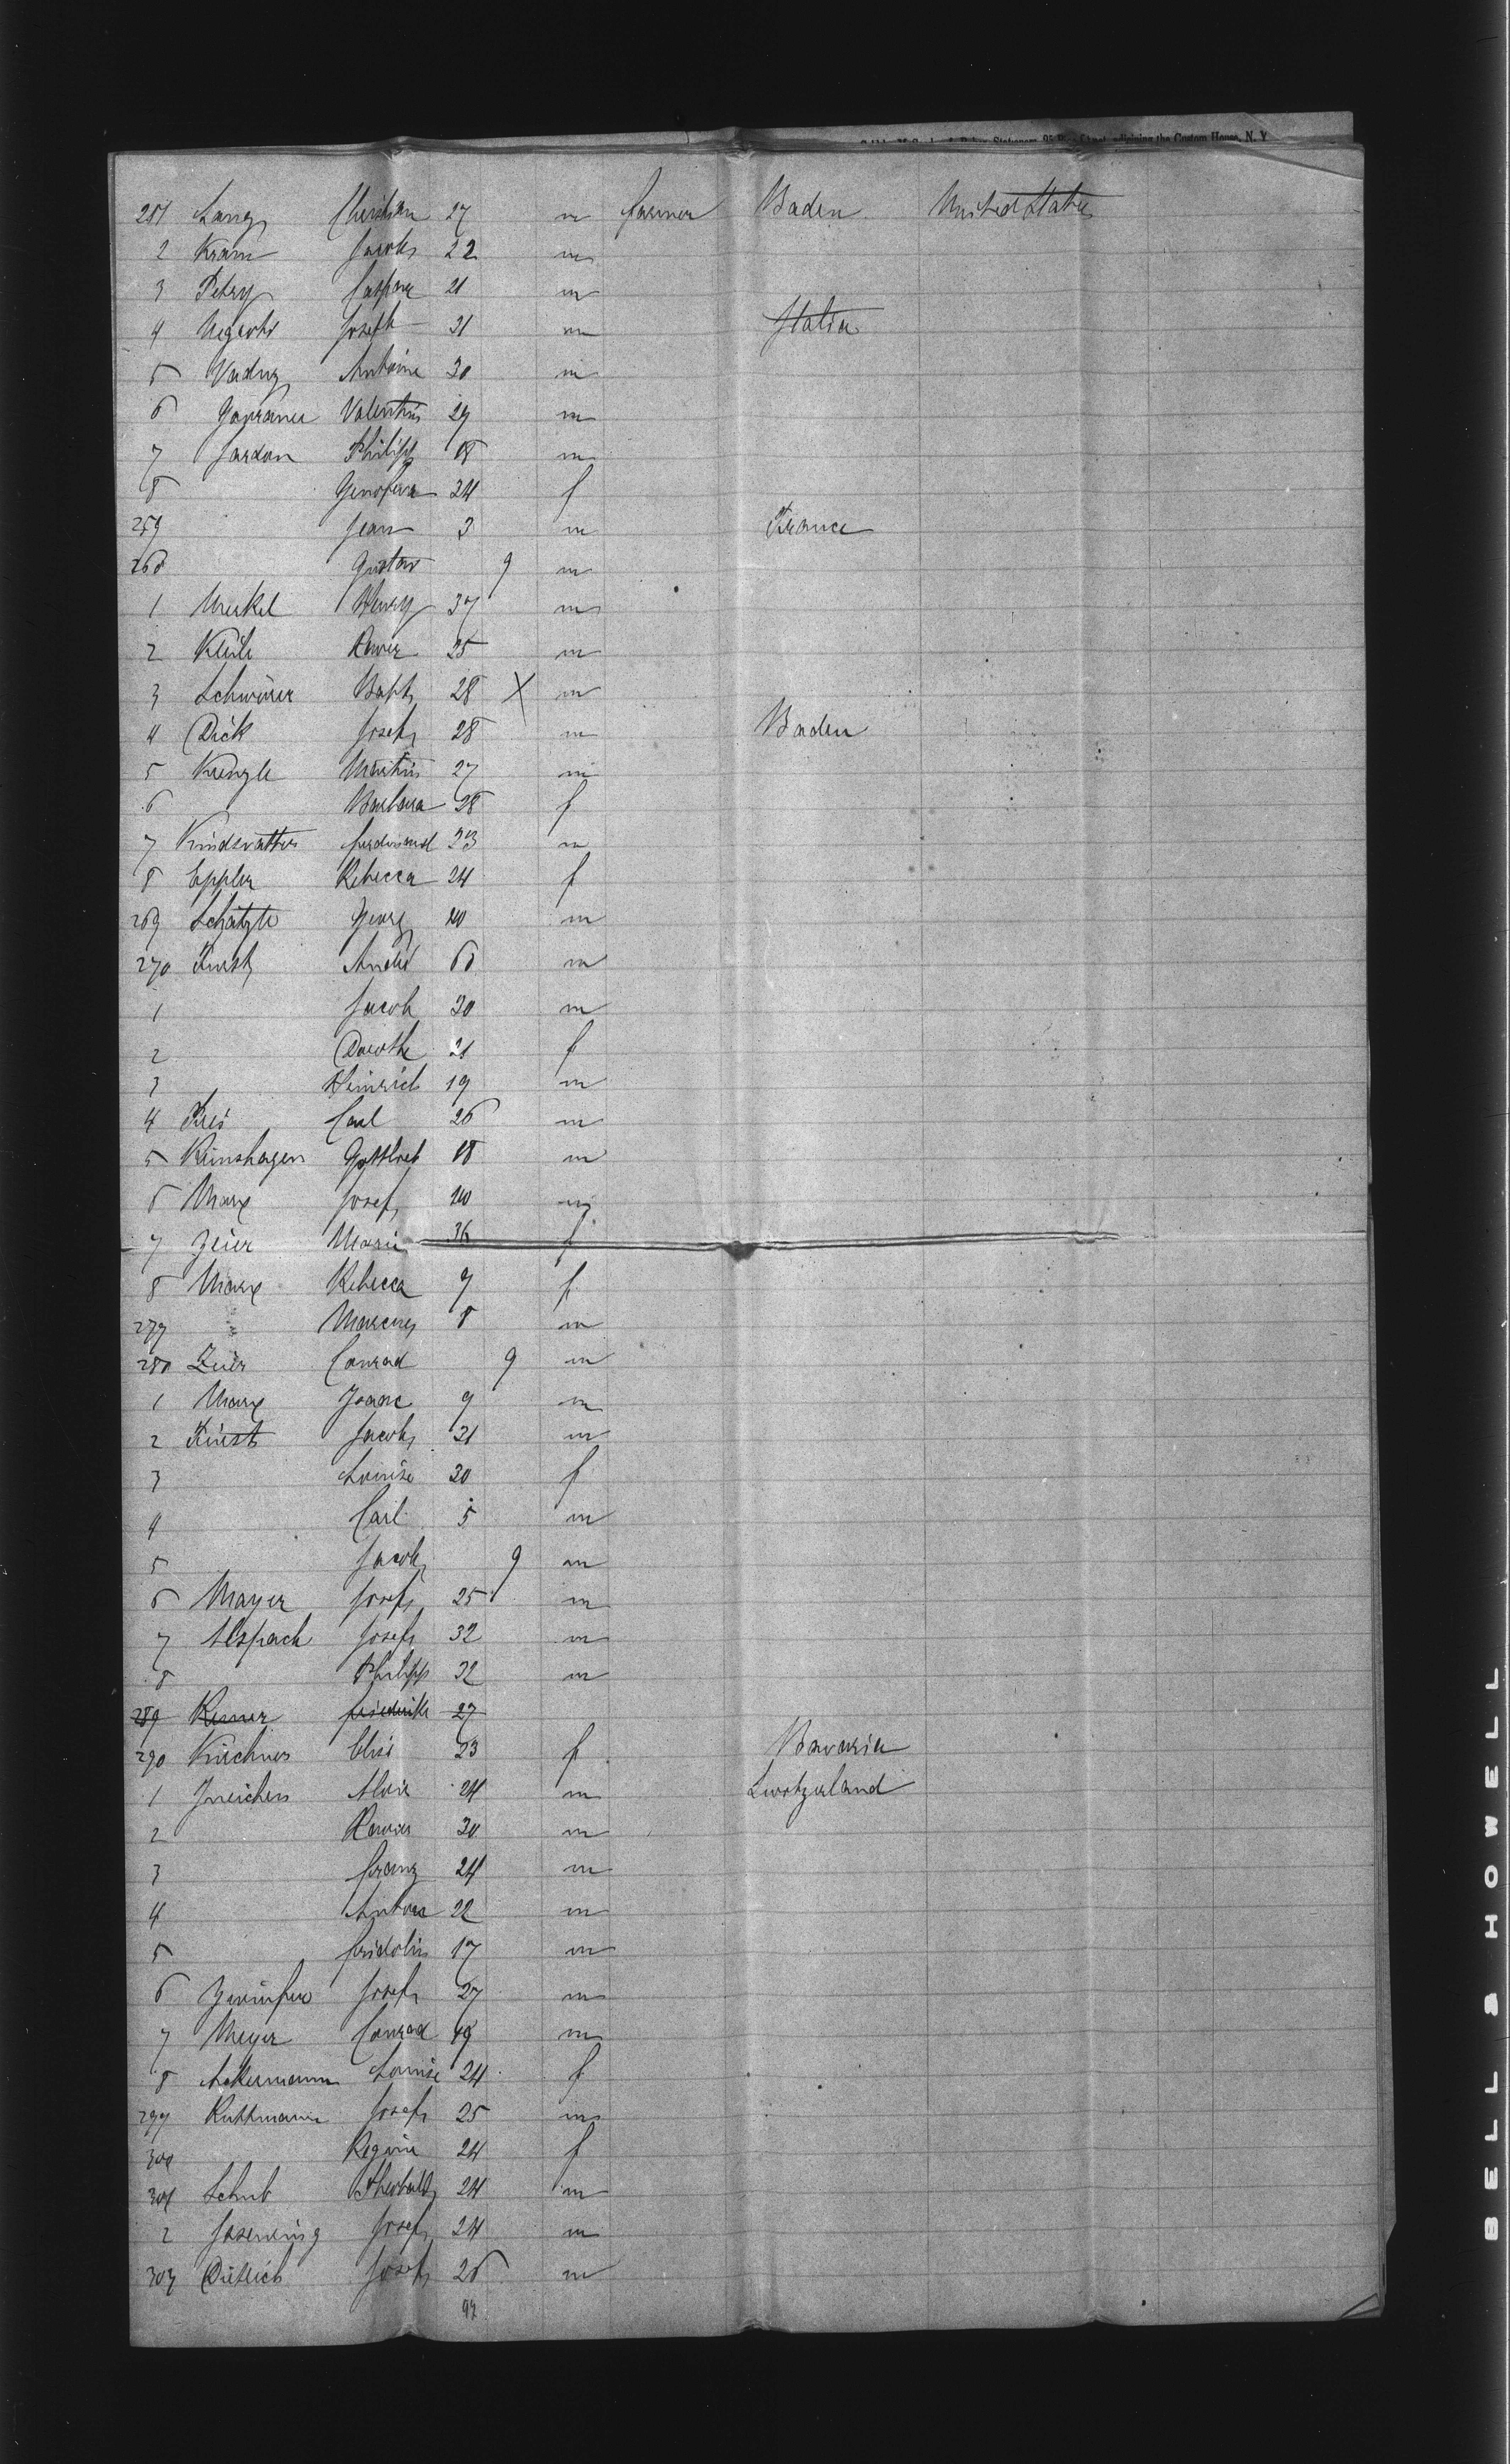 adjoining the Custom House, N. Y.
251 Lang Christian 27 m farmer Baden United States
2 Kram Jacob 22 m
3 Petry Caspar 21 m
4 Joseph 31 m Italia
5 Antoine 30 m
6 Valentin 29 m
7 Jardon Philipp 18 m
8 Genofeva 24 f
259 Jean 3 m France
260 Gustav 9 m
1 Merkel Henry 37 m
2 Xavier 25 m
3 Schwörer Bapt 28 X m
4 Dick Josef 28 m Baden
5 Kuenzle Martin 27 m
6 Barbara 28 f
7 Kindsvatter ferdinand 23 m
8 Eppler Rebecca 24 f
269 Schätzle Georg 20 m
270 Furst André 60 m
1 Jacob 20 m
2 Dorothe 21 f
3 Heinrich 19 m
4 Carl 26 m
5 Reinshagen Gottlieb 18 m
6 Marx Josef m
7 Zeier Marie 36 f
8 Marx Rebecca 9 f
279 " Marcus 8 m
280 Zeier Conrad 9 m
1 Marx Isaac 9 m
2 Fürst Jacob 31 m
3 Louise 30 f
4 Carl 5 m
5 Jacob 9 m
6 Mayer Josef 25 m
7 Alspach Josef 32 m
8 Philipp 32 m
289 friederike 27
290 Kirchner Elise 23 f Bavaria
1 Jneichen Alois 24 m Switzerland
2 Xavier 30 m
3 franz 24 m
4 Anton 22 m
5 fridolin 17 m
6 Josef 27 m
7 Meyer Conrad 49 m
8 Ackermann Louise 24 f
299 Ruttmann Josef 25 m
300 Regina 24 f
301 Schub Theobald 24 m
2 Josef 24 m
303 Dietrich Josef 26 m